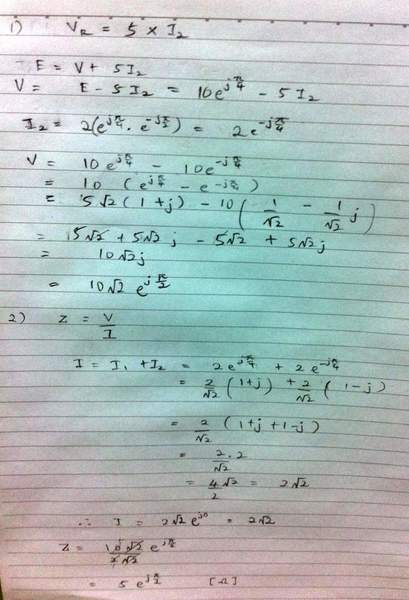 1) V_R = 5 × I₂
- E = V + 5I₂
V = E - 5I₂ = 10e^{jπ/4} - 5I₂
I₂ = 2(e^{jπ/4} · e^{-jπ/2}) = 2e^{-jπ/4}
V = 10e^{jπ/4} - 10e^{-jπ/4}
= 10 (e^{jπ/4} - e^{-jπ/4})
= 5√2(1+j) - 10(1/√2 - 1/√2 j)
= 5√2 + 5√2j - 5√2 + 5√2j
= 10√2j
= 10√2 e^{jπ/2}
2) Z = V/I
I = I₁ + I₂ = 2e^{jπ/4} + 2e^{-jπ/4}
= 2/√2 (1+j) + 2/√2 (1-j)
= 2/√2 (1+j+1-j)
= 2·2/√2
= 4√2/2 = 2√2
∴ I = 2√2e^{j0} = 2√2
Z = 10√2/2√2 e^{jπ/2}
= 5e^{jπ/2} [Ω]